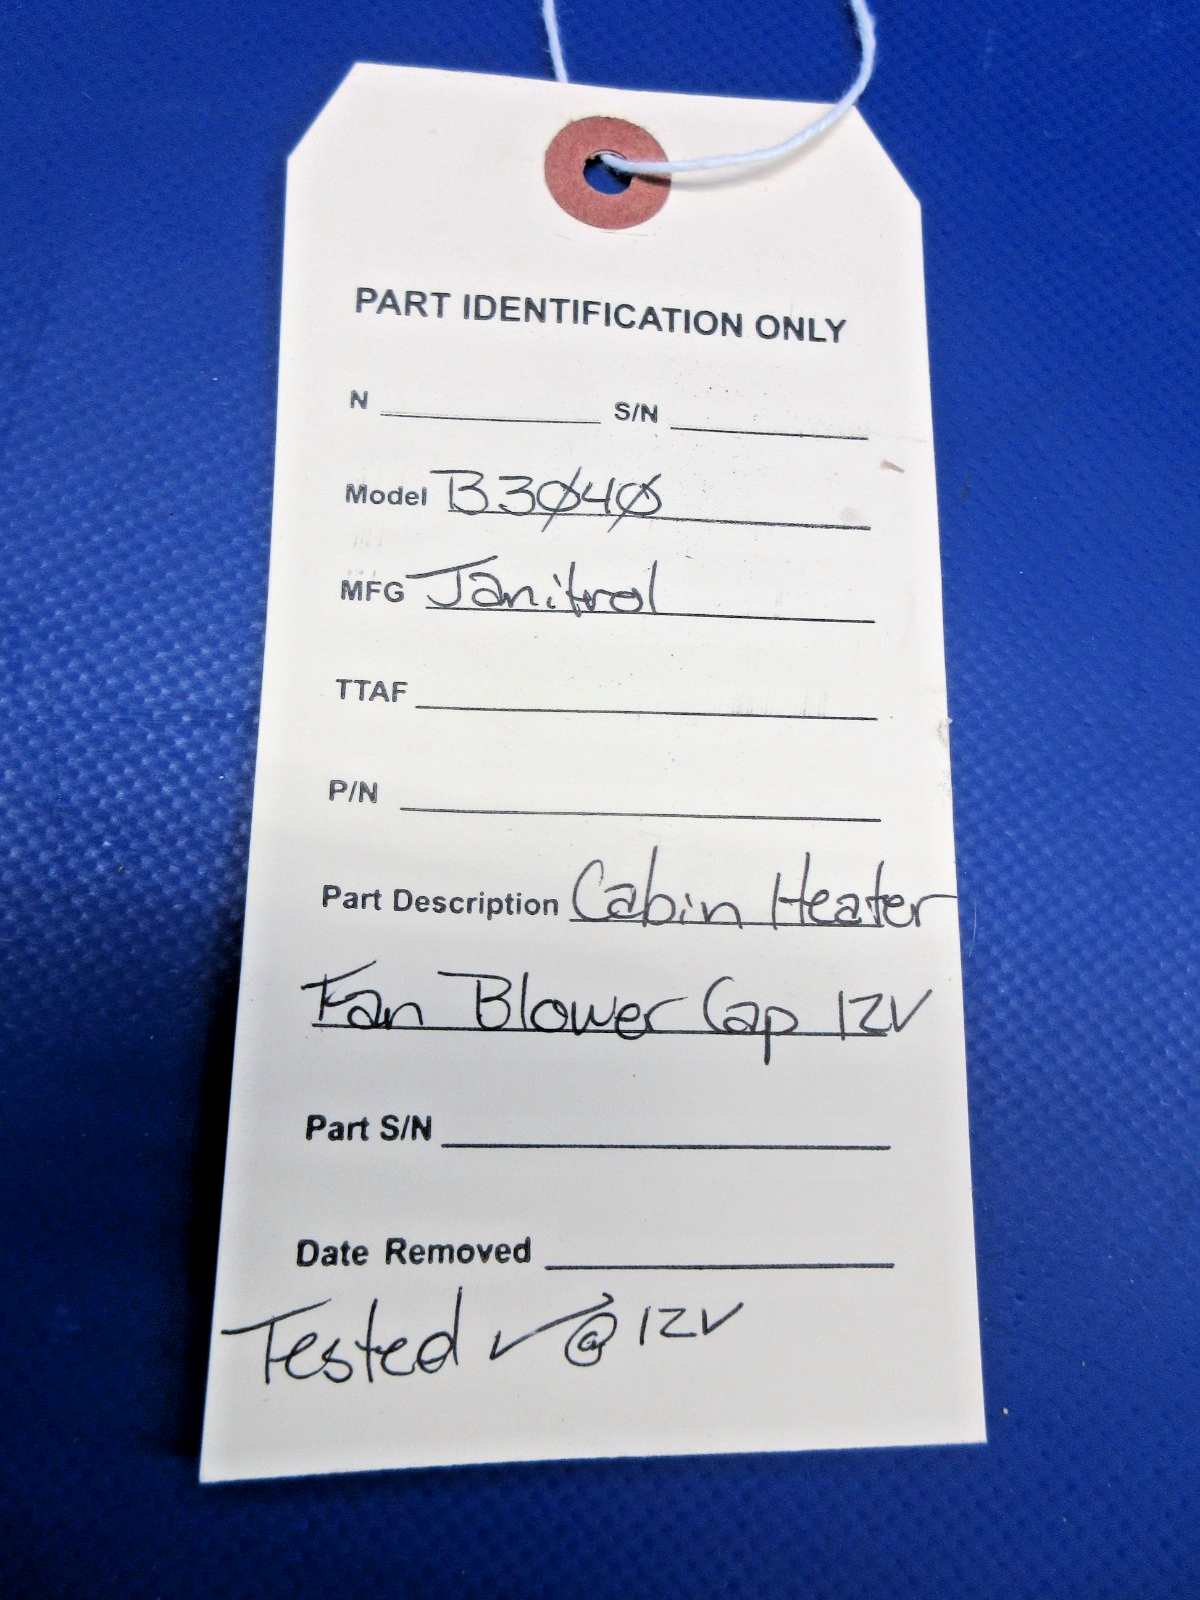 PART IDENTIFICATION ONLY
N S/N
Model B3Ø4Ø
MFG Janitrol
TTAF
P/N
Part Description Cabin Heater
Fan Blower Cap 12V
Part S/N
Date Removed
Tested ✓ @ 12V